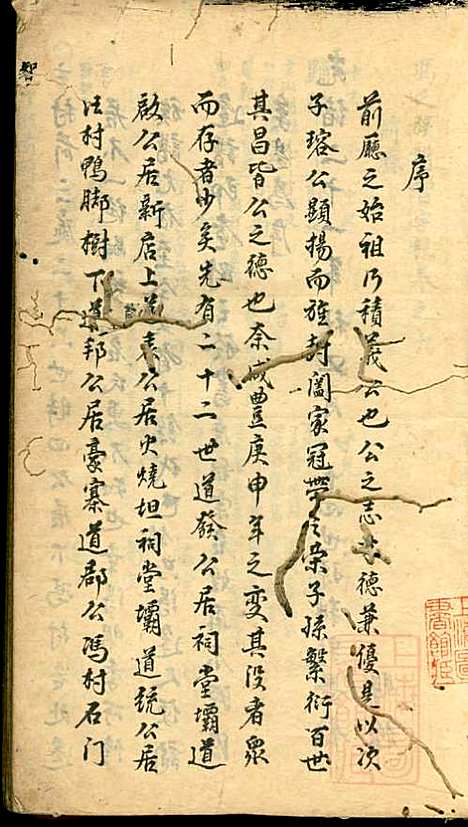 序
前廳之始祖乃積義公也公之志求德兼優是以次
子瑢公顯揚而旌封闔家冠帶之榮子孫繁衍百世
其昌皆公之德也奈咸豐庚申年之變其没者衆
而存者少矣先有二十二世道發公居祠堂壩道
啟公居新店上道表公居火燒坦祠堂壩道統公居
汪村鴨脚樹下道邦公居豪寨道郡公馮村石门